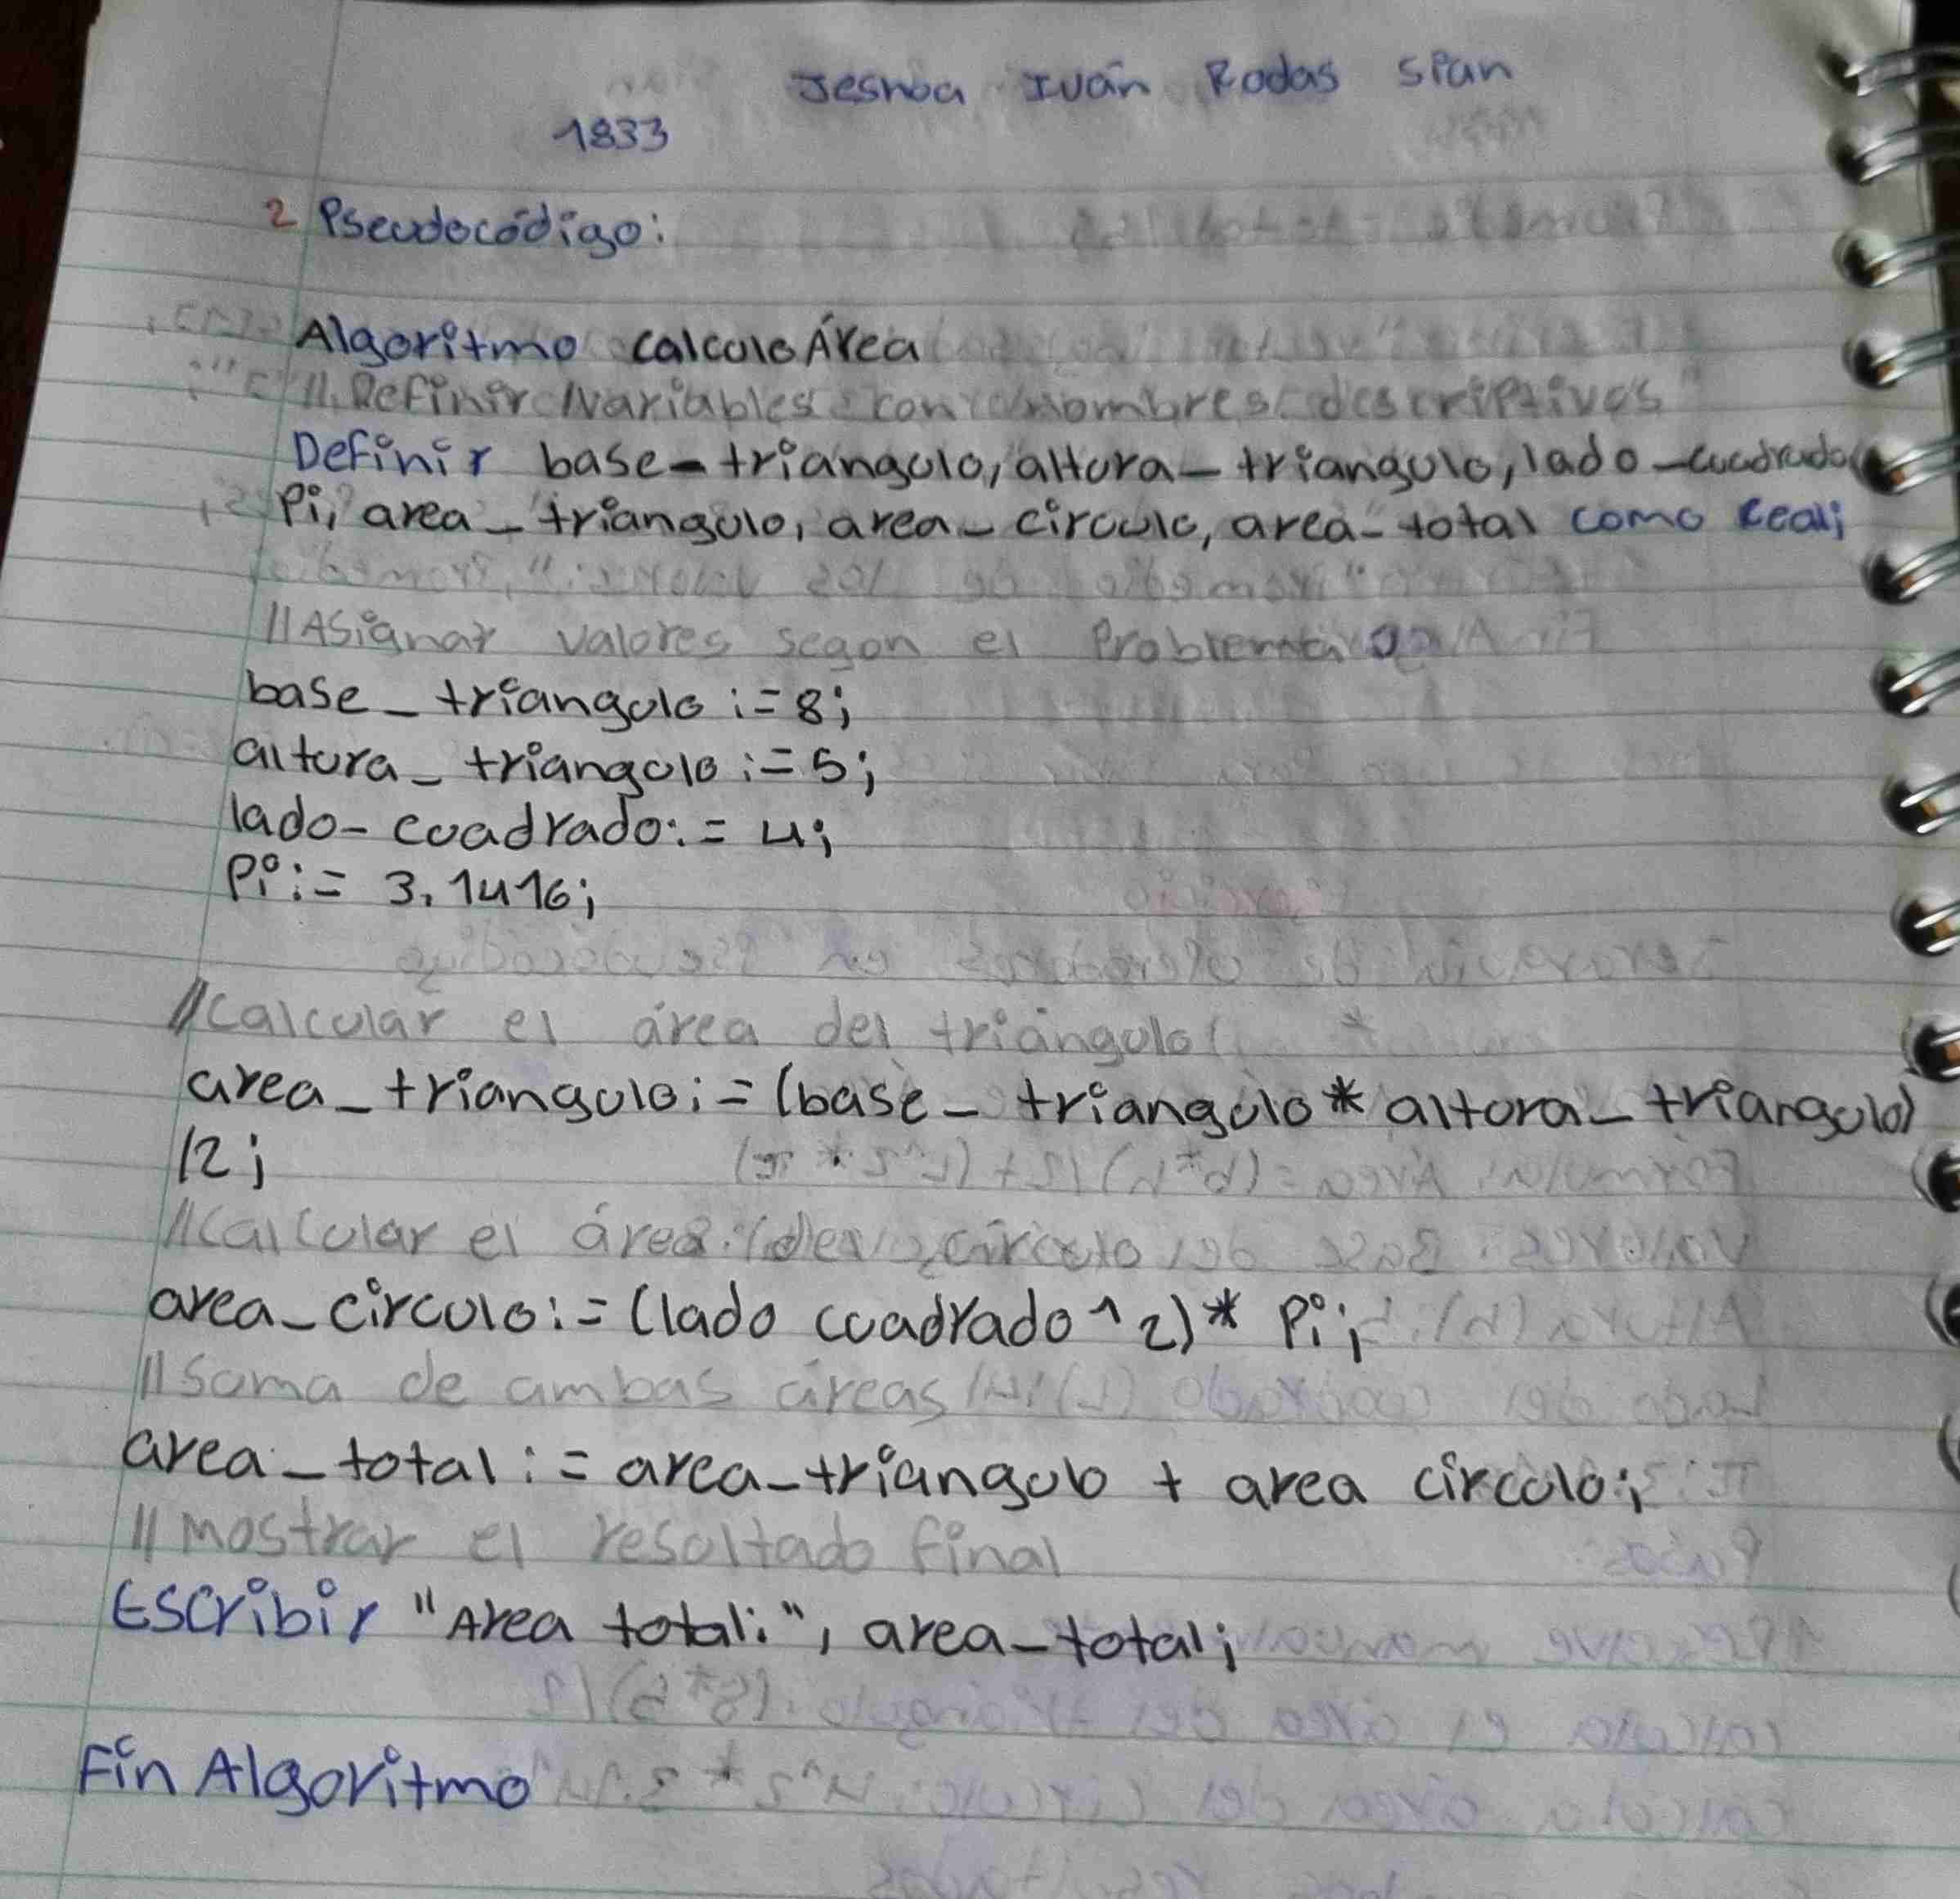 Jeshoa Iván Rodas Sian
1833
2 Pseudocódigo:
Algoritmo calculoÁrea
//Definir variables con nombres descriptivos
Definir base_triangulo, altura_triangulo, lado_cuadrado
Pi, area_triangulo, area_circulo, area_total como Real;
//Asignar valores segun el Problema
base_triangulo := 8;
altura_triangulo := 5;
lado-cuadrado := 4;
Pi := 3.1416;
//Calcular el área del triángulo
area_triangulo := (base_triangulo * altura_triangulo)
/2;
//Calcular el área del círculo
area_circulo := (lado cuadrado ^ 2) * Pi;
//Suma de ambas áreas
area_total := area_triangulo + area circulo;
//mostrar el resultado final
Escribir "Area total:", area_total;
Fin Algoritmo